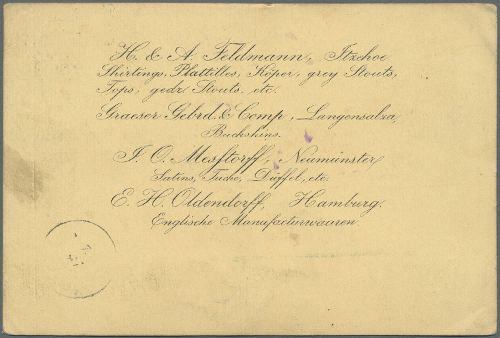 H. & A. Feldmann, Itzehoe
Shirtings, Plattilles, Köper, grey Stouts,
Tops, gedr. Stouts. etc.
Graeser Gebrd. & Comp, Langensalza,
Buckskins.
J. O. Mesftorff, Neumünster,
Satins, Tuche, Düffel, etc.
E. H. Oldendorff, Hamburg.
Englische Manufacturwaaren.